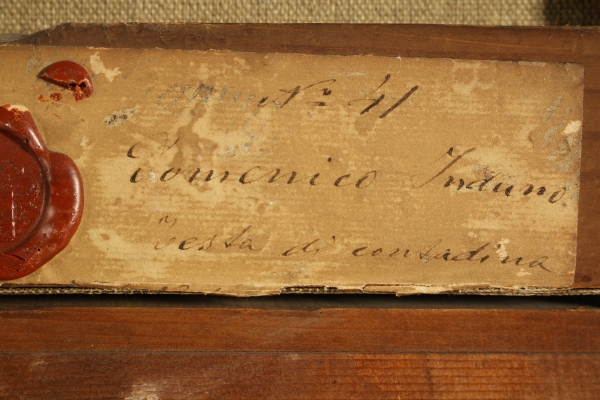 N° 41
Domenico Induno
Testa di contadina